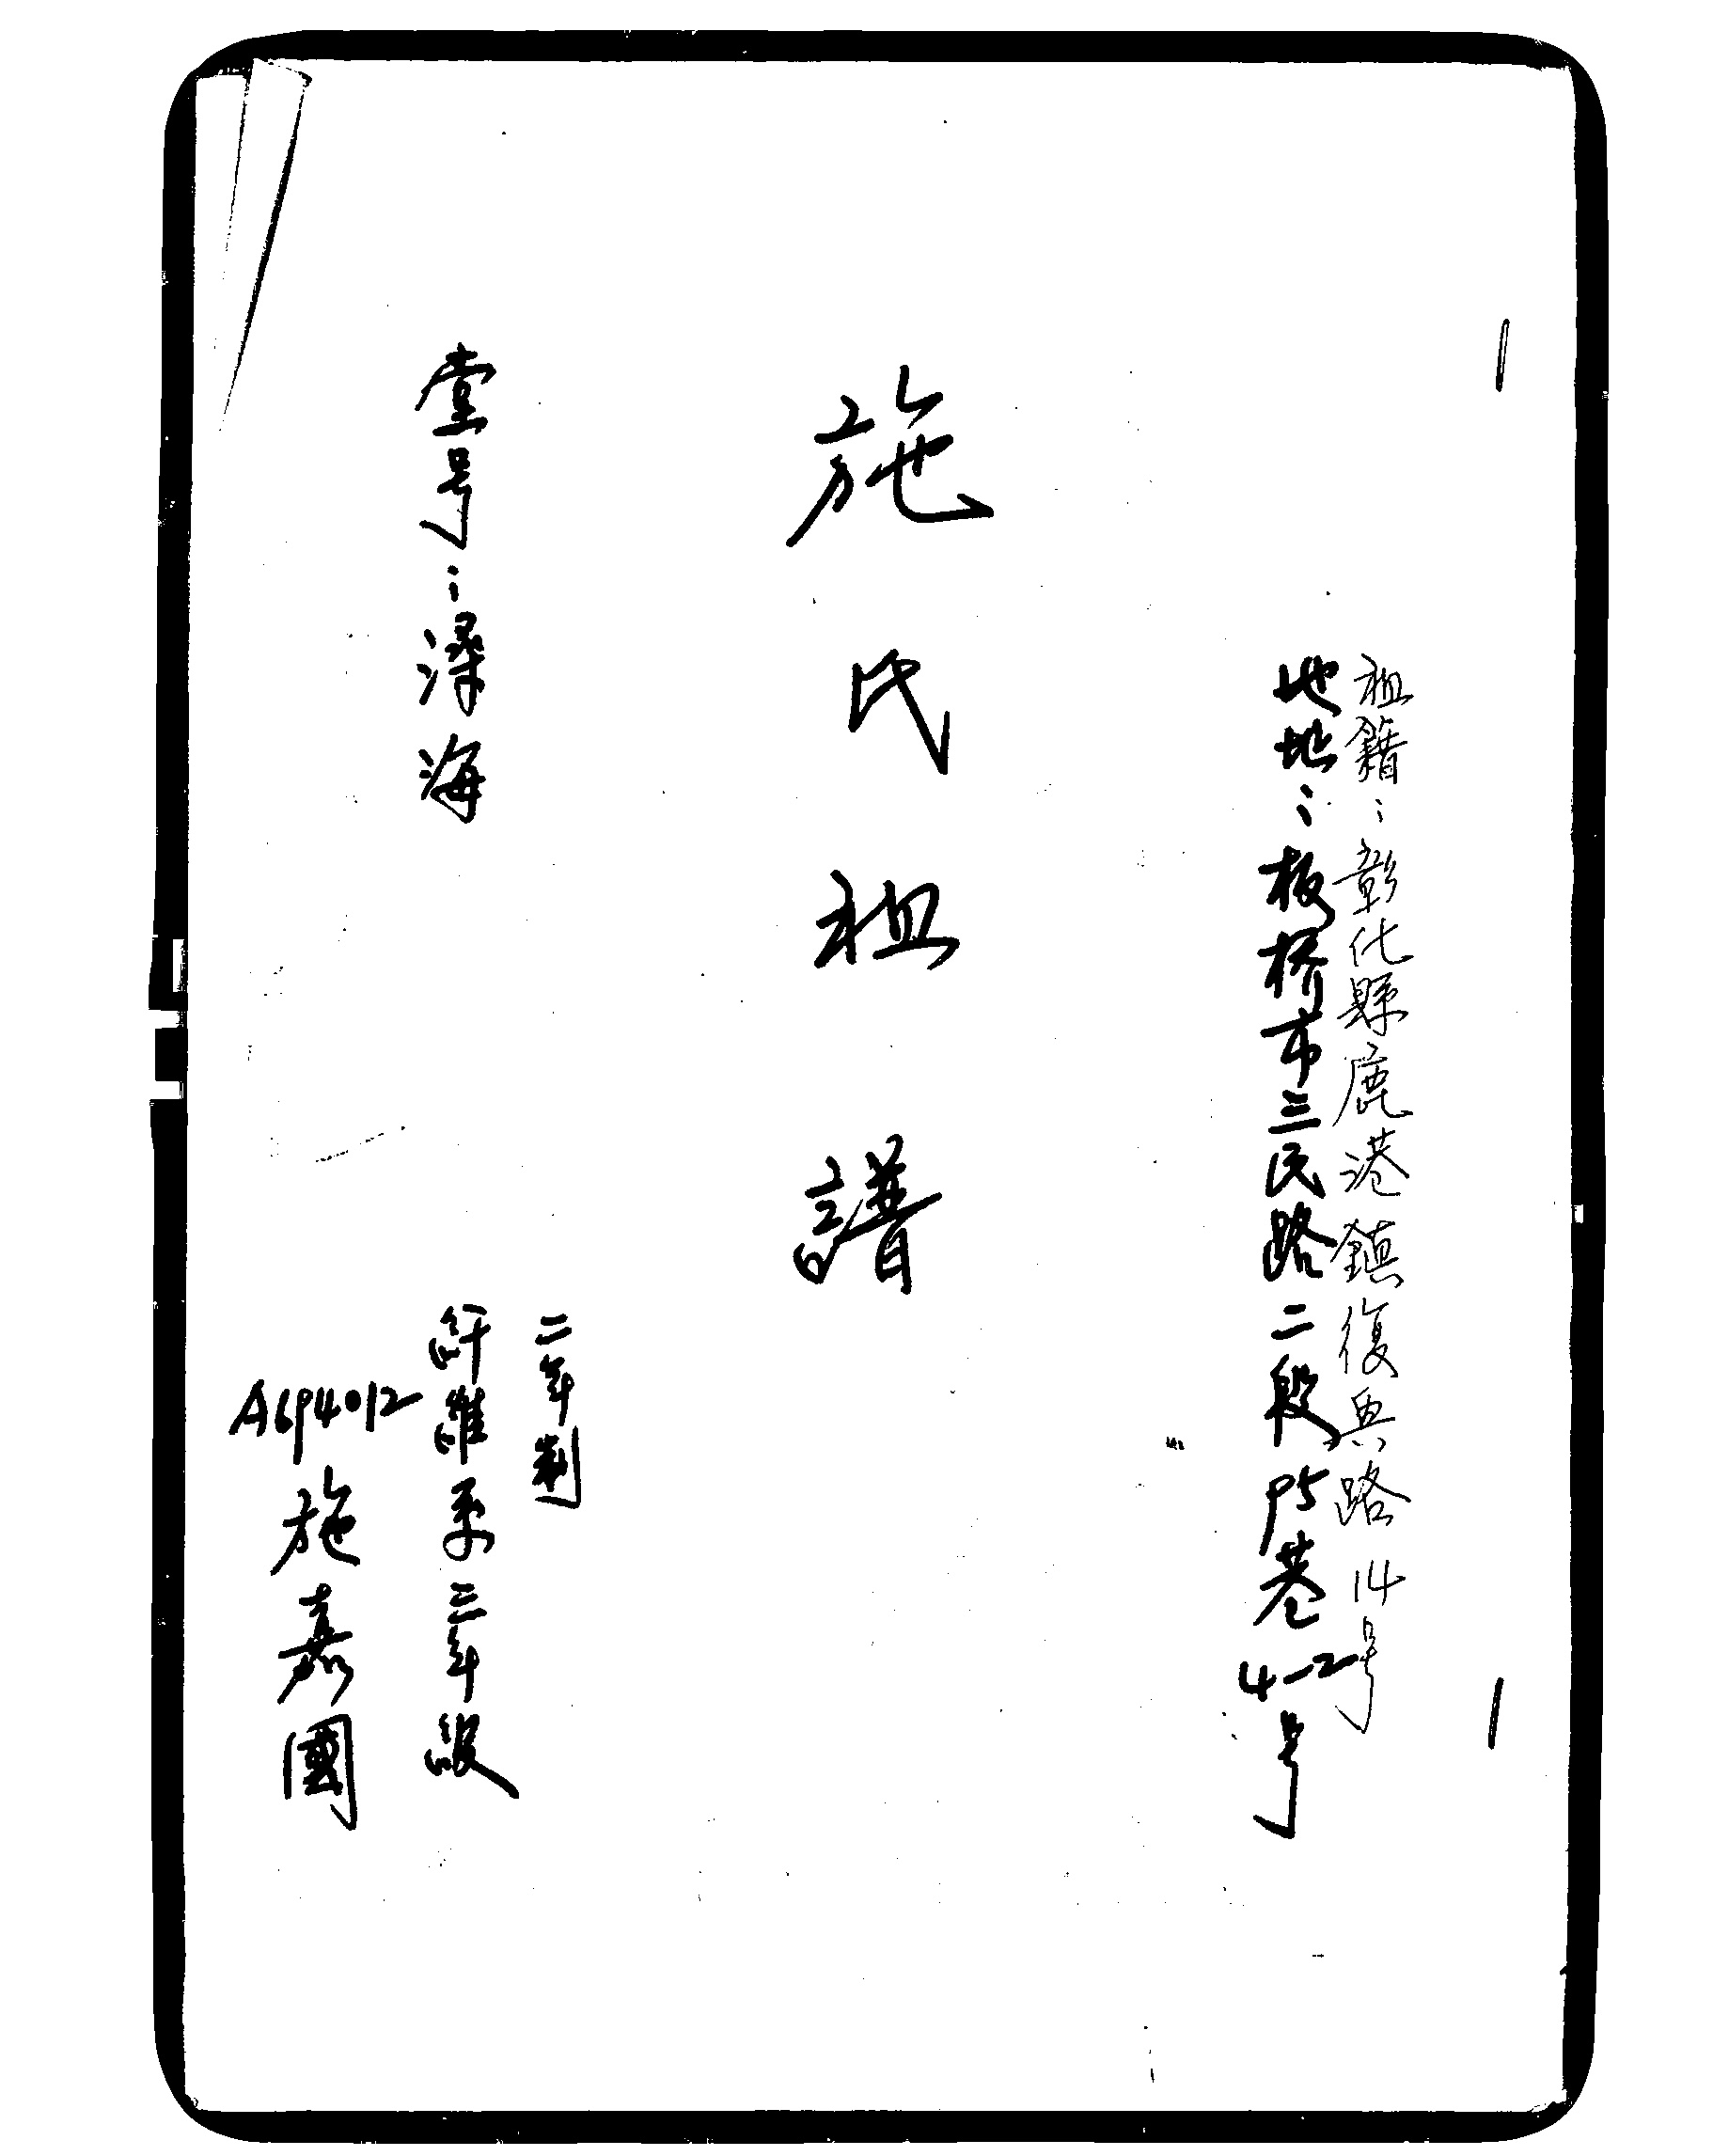 祖籍：彰化縣鹿港鎮復興路14号
地址：板桥市三民路二段95巷4-2号
施氏祖譜
堂号：潯海
二年制
纤維系三年級
A694012 施嘉團